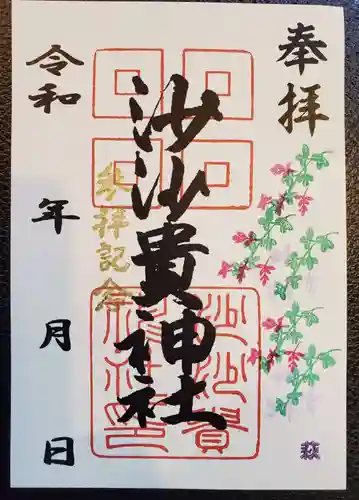 奉拝
沙沙貴神社
参拝記念
令和 年 月 日
沙沙貴神社印
萩